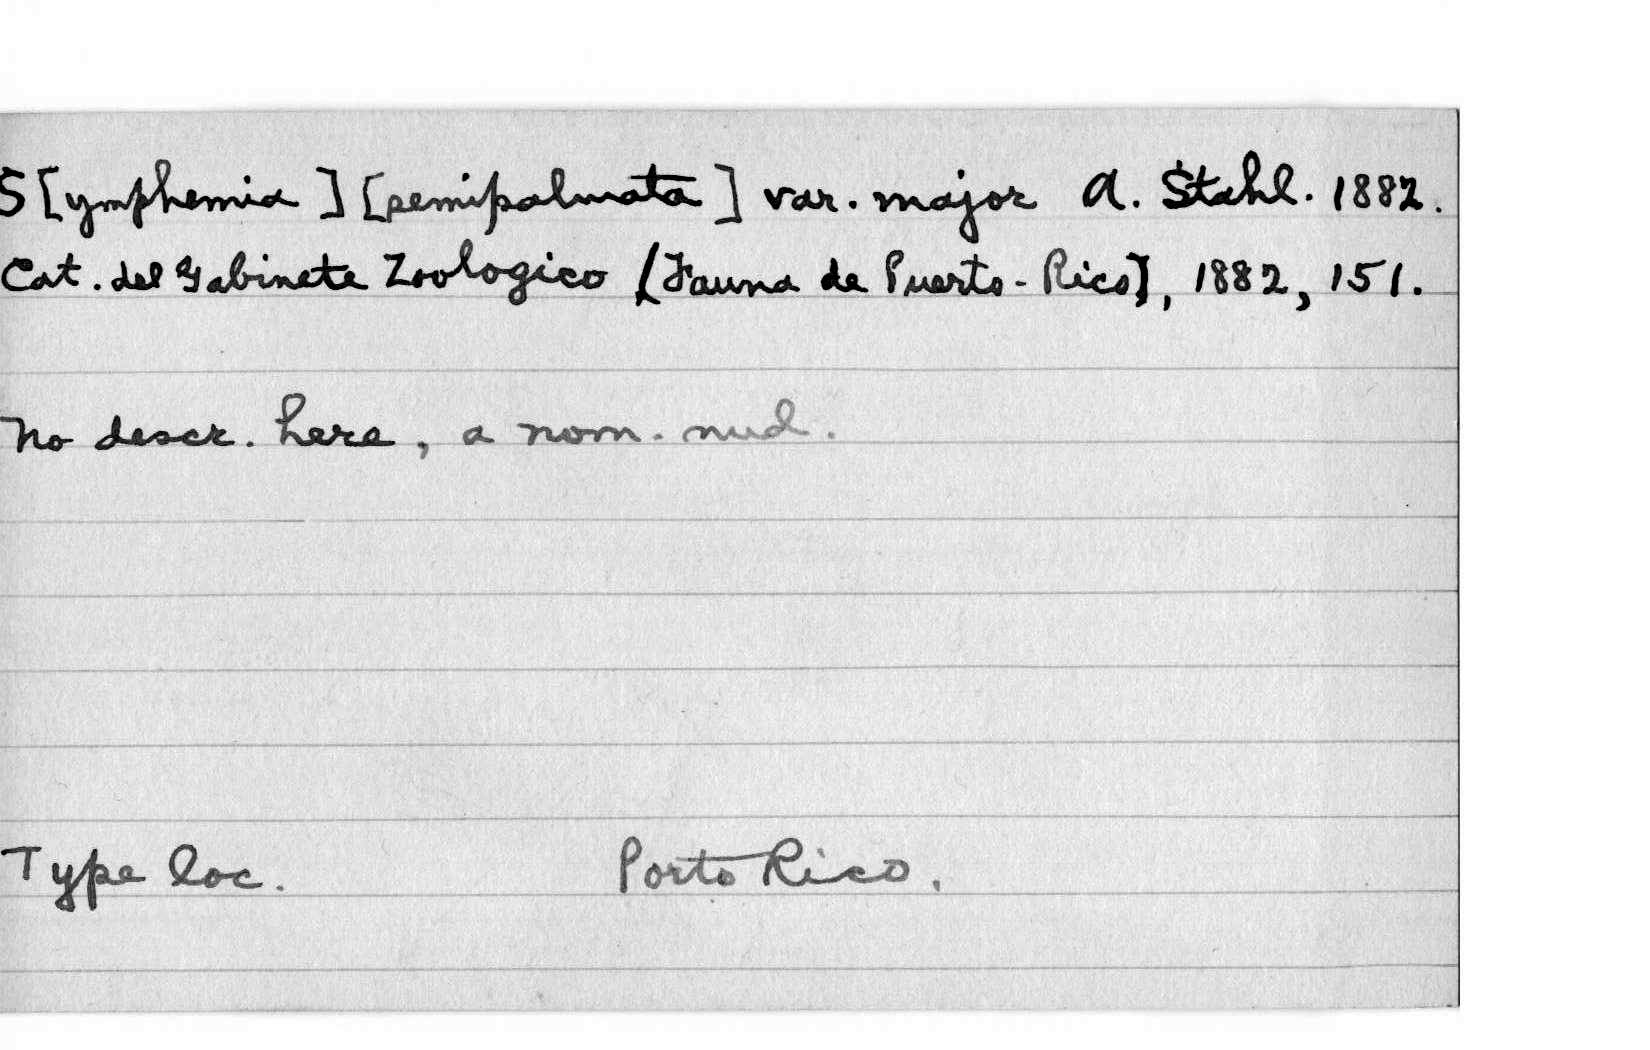 S[ymphemia] [semipalmata] var. major A. Stahl. 1882.
Cat. del Gabinete Zoologico [Fauna de Puerto-Rico], 1882, 151.
No descr. here, a nom. nud.
Type loc. Porto Rico.